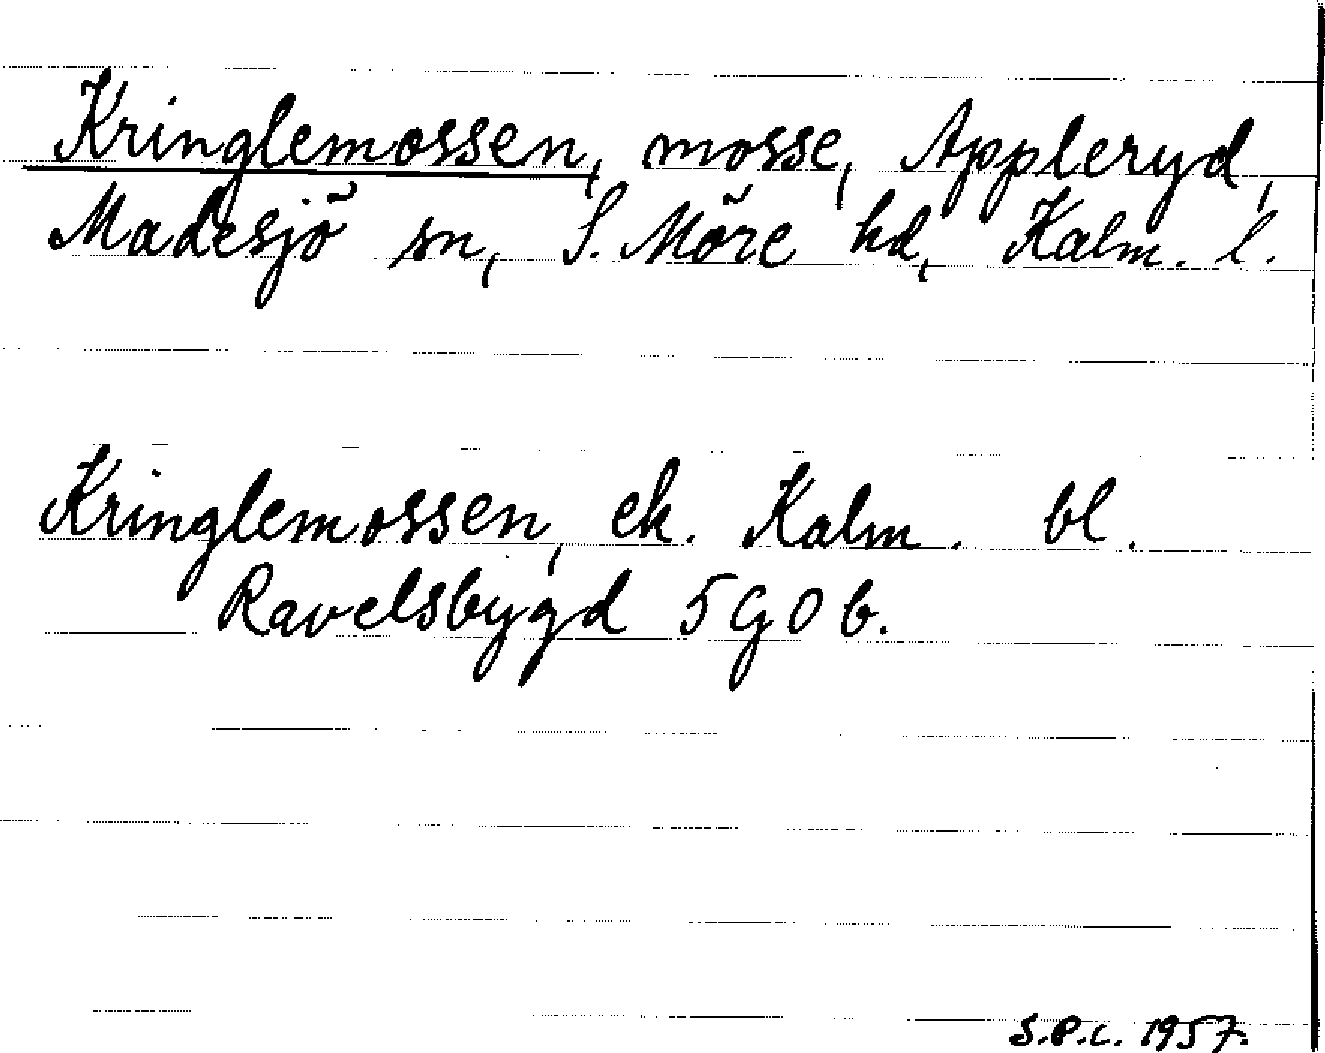 Kringlemossen, mosse, Appleryd,
Madesjö sn, S. Möre hd, Kalm. l.
Kringlemossen, ek. Kalm. bl.
Ravelsbygd 5 G 0 b.
S.P.C. 1957.